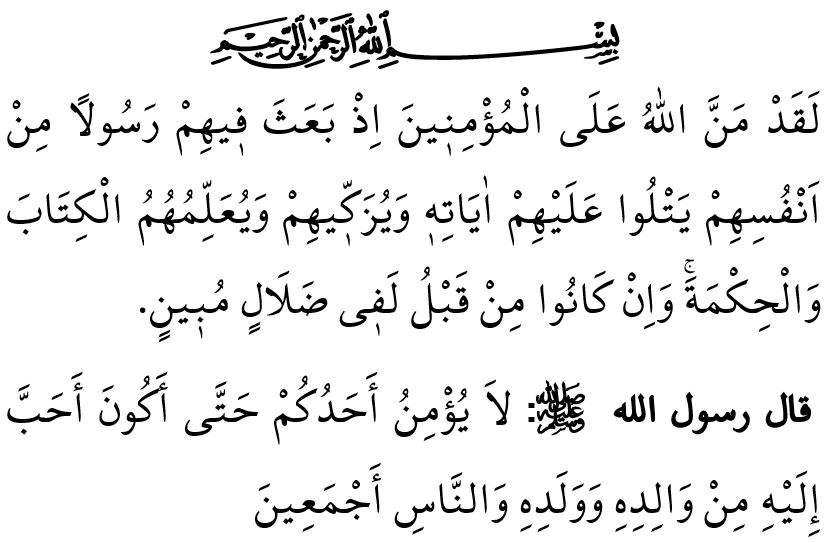 بِسْمِ اللهِ الرَّحْمٰنِ الرَّحِيمِ
لَقَدْ مَنَّ اللهُ عَلَى الْمُؤْمِنٖينَ اِذْ بَعَثَ فٖيهِمْ رَسُولًا مِنْ
اَنْفُسِهِمْ يَتْلُوا عَلَيْهِمْ اٰيَاتِهٖ وَيُزَكّٖيهِمْ وَيُعَلِّمُهُمُ الْكِتَابَ
وَالْحِكْمَةَۚ وَاِنْ كَانُوا مِنْ قَبْلُ لَفٖى ضَلَالٍ مُبٖينٍ.
قال رسول الله ﷺ: لاَ يُؤْمِنُ أَحَدُكُمْ حَتَّى أَكُونَ أَحَبَّ
إِلَيْهِ مِنْ وَالِدِهِ وَوَلَدِهِ وَالنَّاسِ أَجْمَعِينَ